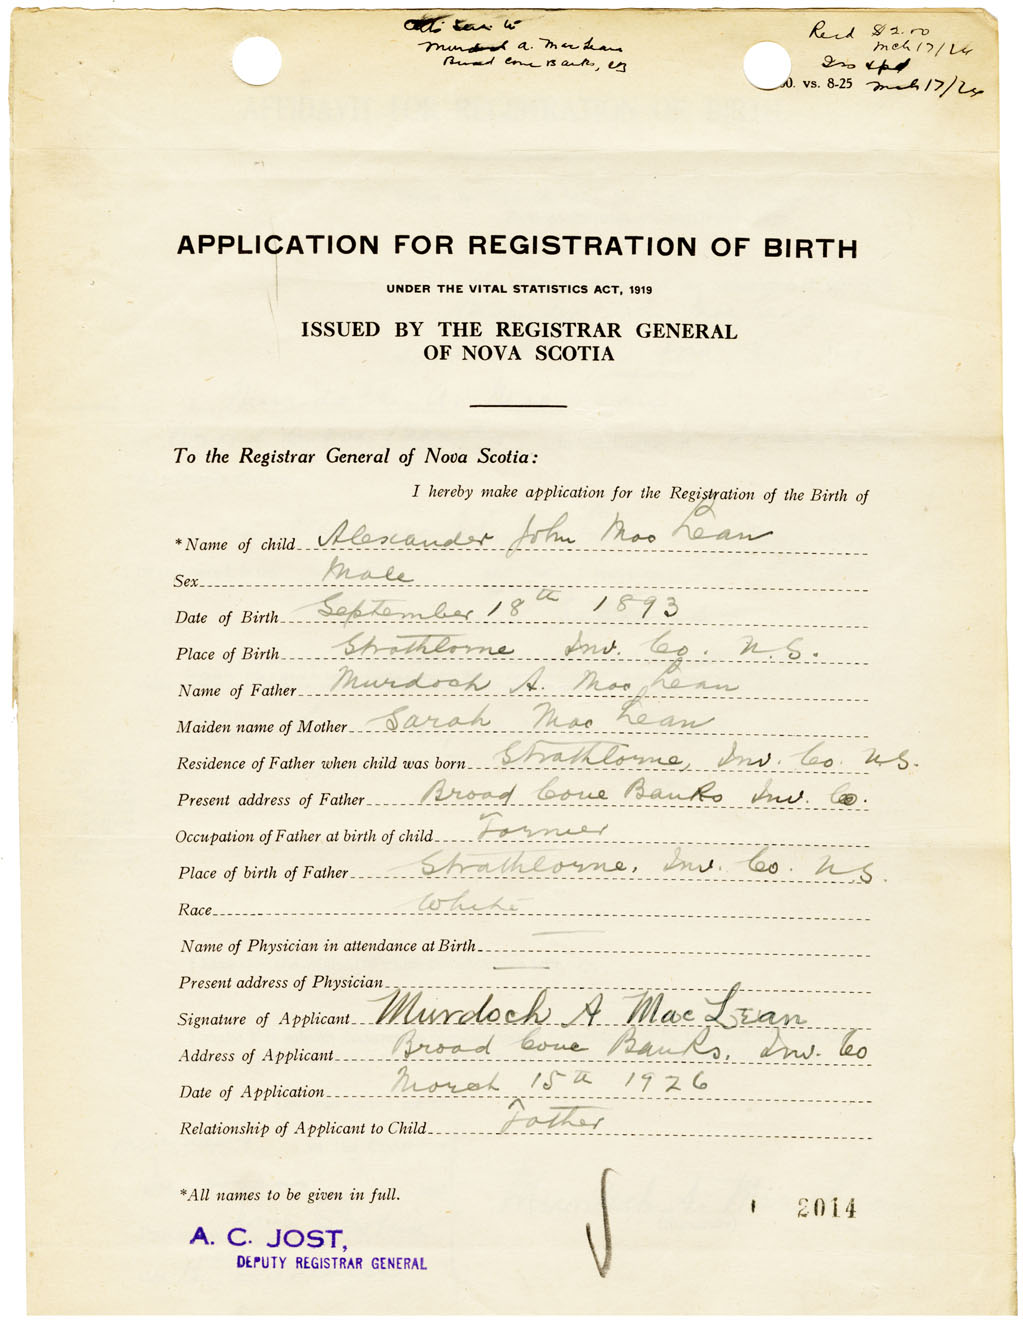 Murdoch A. MacLean
Broad Cove Banks, CB
Recd $2.00
Mch 17/26
00. vs. 8-25
Mch 17/26
APPLICATION FOR REGISTRATION OF BIRTH
UNDER THE VITAL STATISTICS ACT, 1919
ISSUED BY THE REGISTRAR GENERAL
OF NOVA SCOTIA
To the Registrar General of Nova Scotia:
I hereby make application for the Registration of the Birth of
*Name of child Alexander John MacLean
Sex Male
Date of Birth September 18th 1893
Place of Birth Strathlorne Inv. Co. N.S.
Name of Father Murdoch A. MacLean
Maiden name of Mother Sarah MacLean
Residence of Father when child was born Strathlorne, Inv. Co. N.S.
Present address of Father Broad Cove Banks Inv. Co.
Occupation of Father at birth of child Farmer
Place of birth of Father Strathlorne, Inv. Co. N.S.
Race White
Name of Physician in attendance at Birth —
Present address of Physician —
Signature of Applicant Murdoch A MacLean
Address of Applicant Broad Cove Banks, Inv. Co
Date of Application March 15th 1926
Relationship of Applicant to Child Father
*All names to be given in full.
2014
A. C. JOST,
DEPUTY REGISTRAR GENERAL